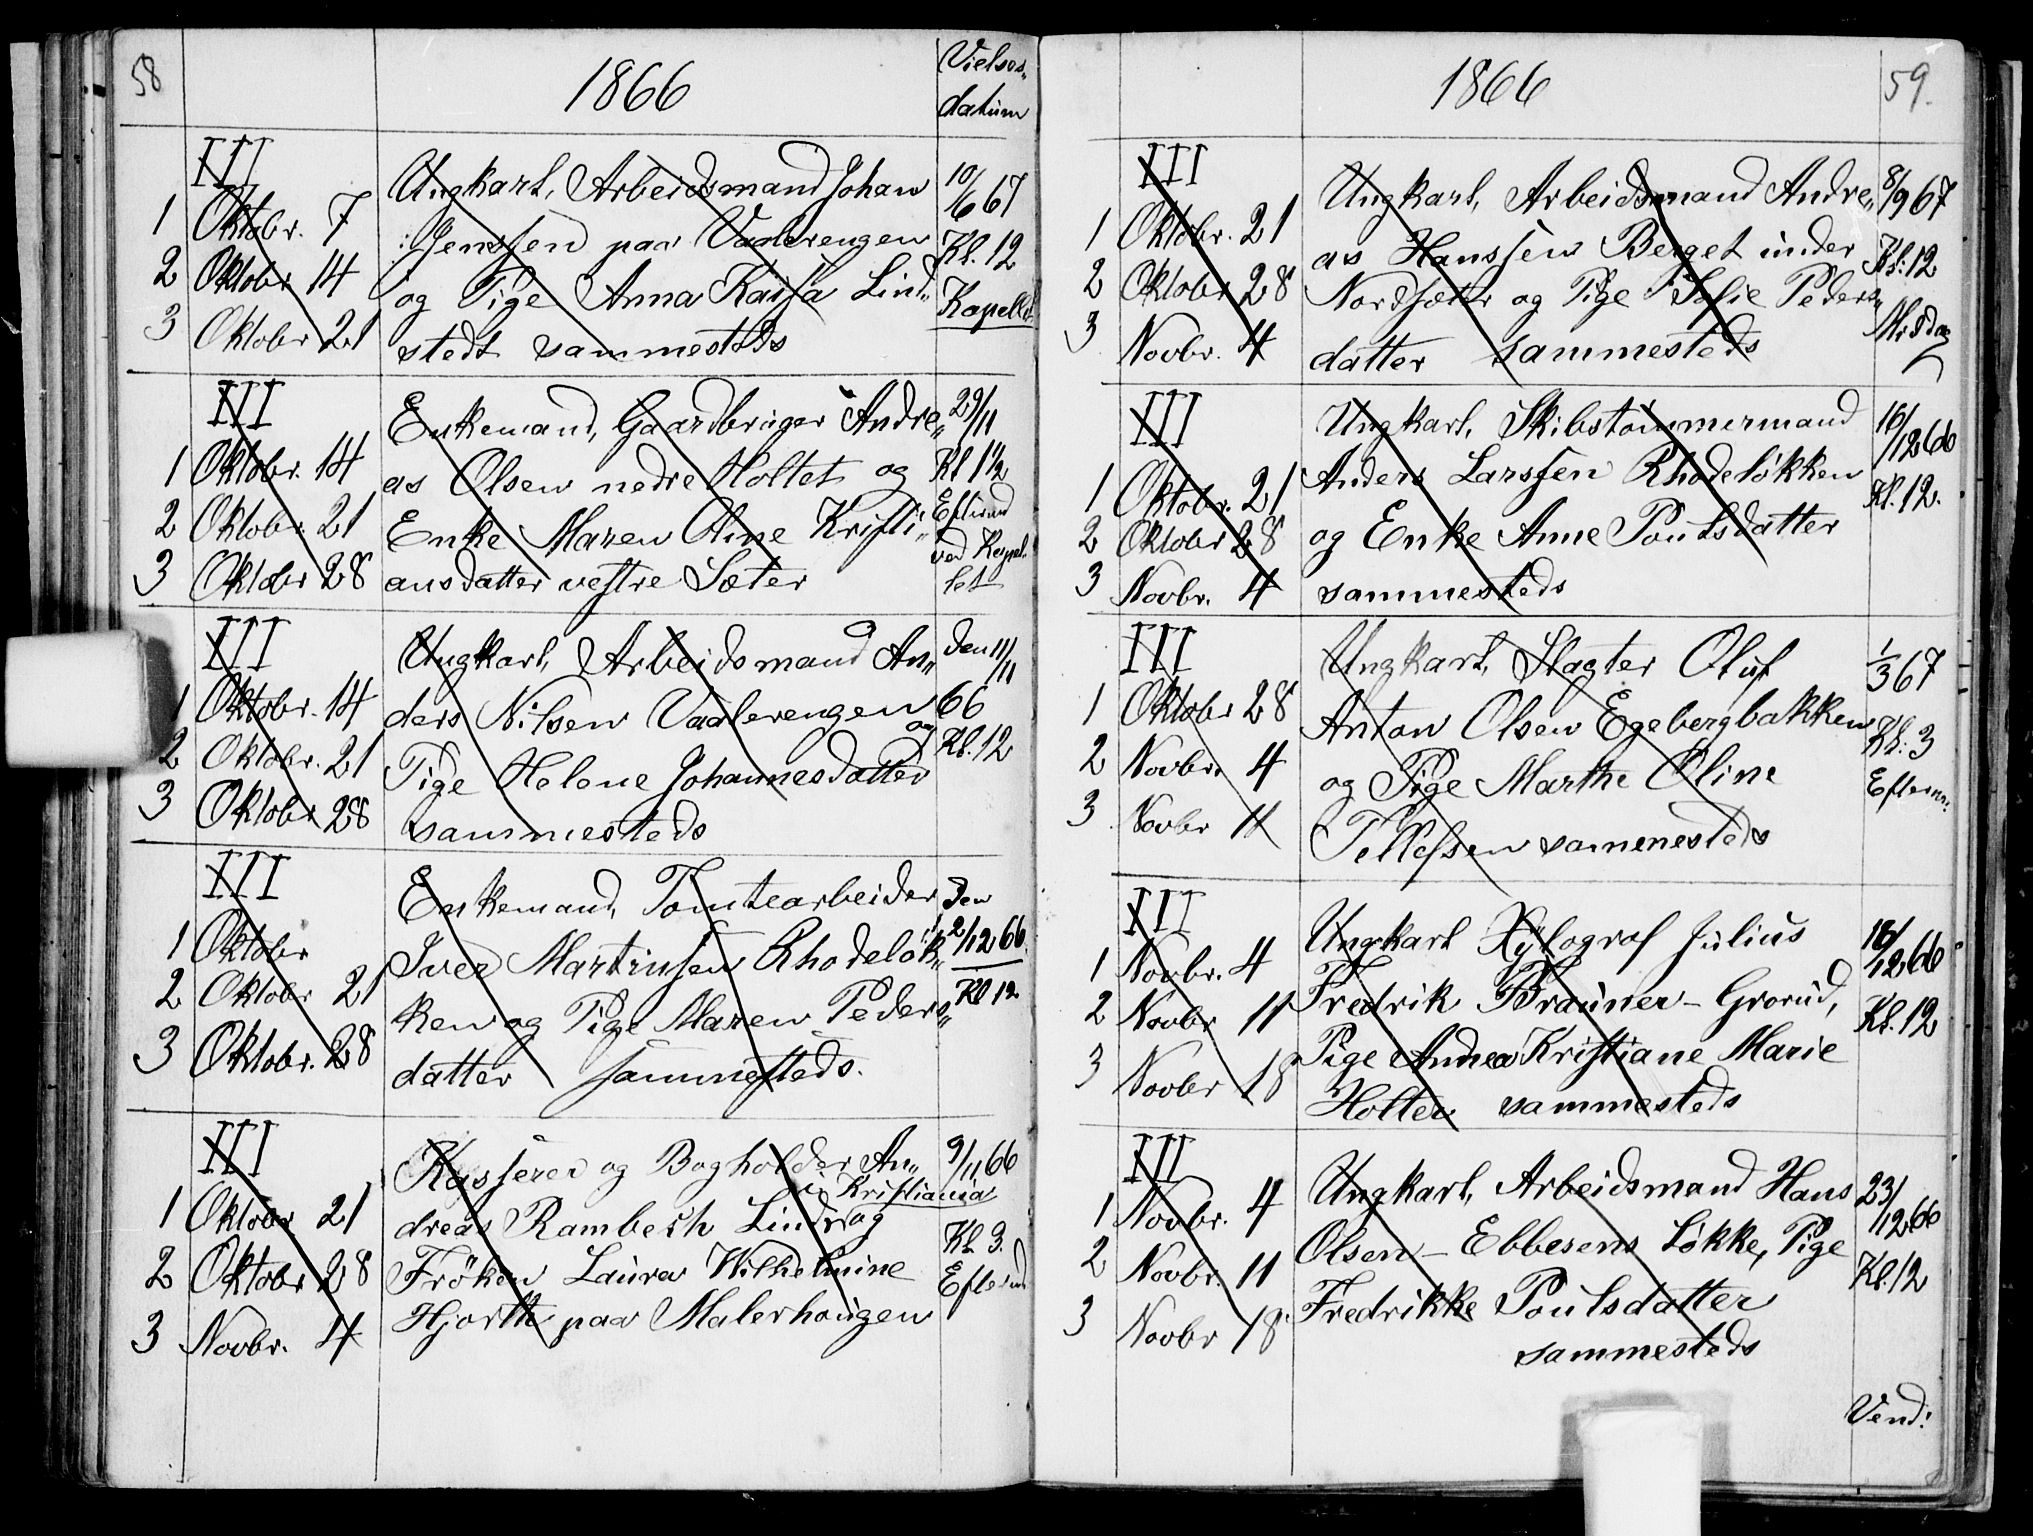 58
1866
Vielses-
datum
III
1 Oktobr. 7
2 Oktobr 14
3 Oktobr 21
Ungkarl, Arbeidsmand Johan
Jenssen paa Vaalerengen
og Pige Anna Kaisa Lind„
stedt sammesteds
10/6 67
Kl. 12
Kapellet
III
1 Oktobr. 14
2 Oktobr. 21
3 Oktobr 28
Enkemand, Gaardbruger Andre„
as Olsen nedre Holtet og
Enke Maren Oline Kristi„
ansdatter vestre Sæter
29/11
Kl 1½
Efterm
ved Kapel-
let
III
1 Oktobr. 14
2 Oktobr. 21
3 Oktobr 28
Ungkarl, Arbeidsmand An„
ders Nilsen Vaalerengen og
Pige Helene Johannesdatter
sammesteds
Den 11/11
66
Kl. 12
III
1 Oktober
2 Oktobr 21
3 Oktobr. 28
Enkemand, Tomtearbeider
Iver Martinsen Rhodeløk„
ken og Pige Maren Peders„
datter sammesteds.
Den
2/12 66.
Kl 12
III
1 Oktobr 21
2 Oktobr 28
3 Novbr. 4
Kasserer og Bogholder An„
i Kristiania
dreas Rambech Lind og
Frøken Laura Wilhelmine
Hjorth paa Malerhaugen
9/11 66
Kl. 3.
Efterm
1866
59.
III
1 Oktobr. 21
2 Oktobr 28
3 Novbr. 4
Ungkarl, Arbeidsmand Andre„
as Hanssen Berget under
Nordsæter og Pige Sofie Peders„
datter sammesteds
8/9 67
Kl: 12
Middag
III
1 Oktobr. 21
2 Oktobr 28
3 Novbr. 4
Ungkarl, Skibstømmermand
Anders Larssen Rhodeløkken
og Enke Anne Poulsdatter
sammesteds
16/12 66
Kl. 12.
III
1 Oktobr 28
2 Novbr. 4
3 Novbr 11
Ungkarl, Slagter Oluf
Anton Olsen Egebergbakken
og Pige Marthe Oline
Tellefsen sammesteds
1/3 67
Kl: 3
Efterm:
III
1 Novbr. 4
2 Novbr 11
3 Novbr 18
Ungkarl Xylograf Julius
Fredrik Brauner - Grorud,
Pige Andrea Kristiane Marie
Holter sammesteds
16/12 66
Kl. 12
III
1 Novbr. 4
2 Novbr. 11
3 Novbr 18
Ungkarl, Arbeidsmand Hans
Olsen - Ebbesens Løkke, Pige
Fredrikke Poulsdatter
sammesteds
23/12 66
Kl. 12
Vend!